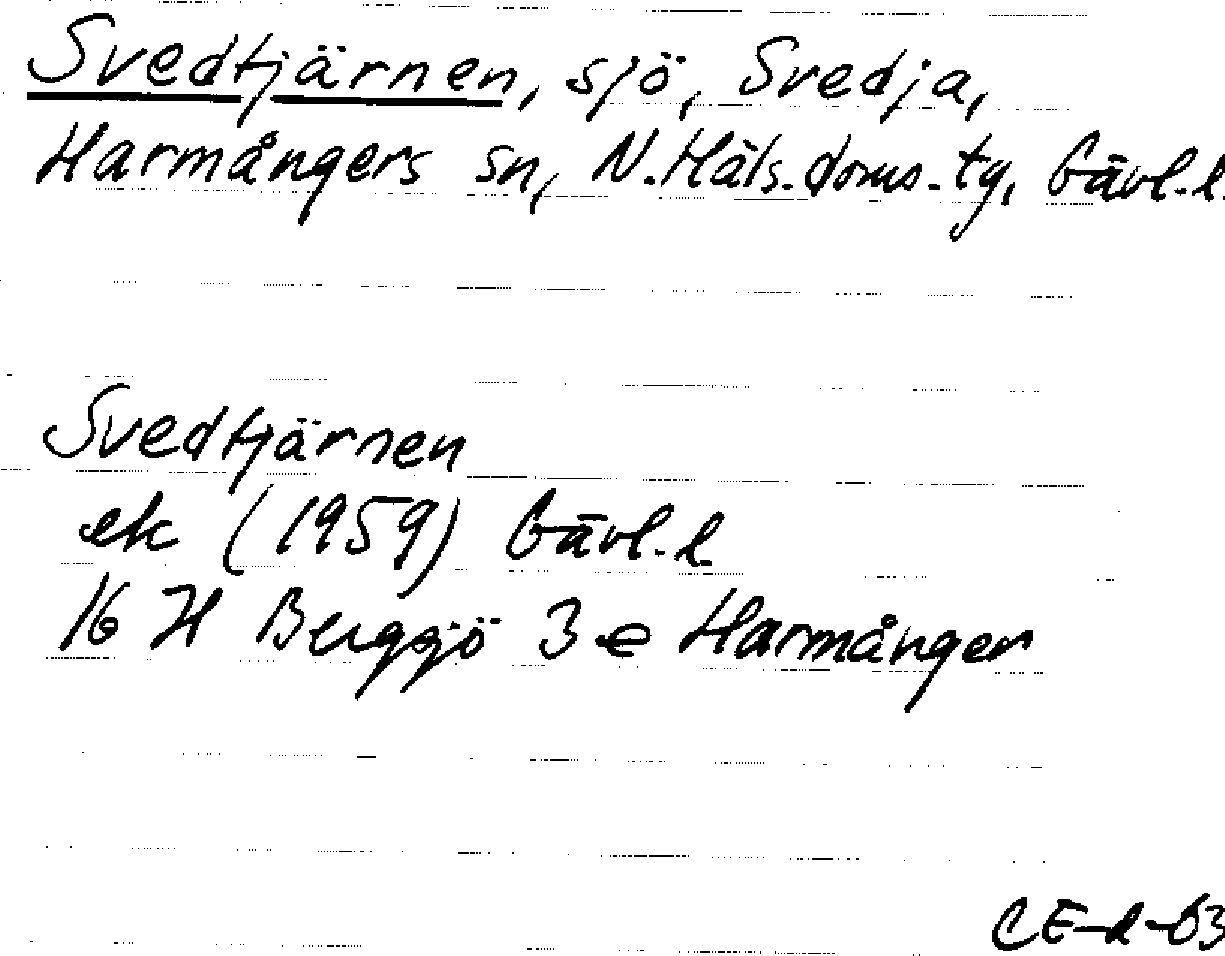 Svedtjärnen, sjö, Svedja,
Harmångers sn, N. Häls. doms. tg, Gävl. l.
Svedtjärnen
ek (1959) Gävl. l.
16 H Bergsjö 3 e Harmånger